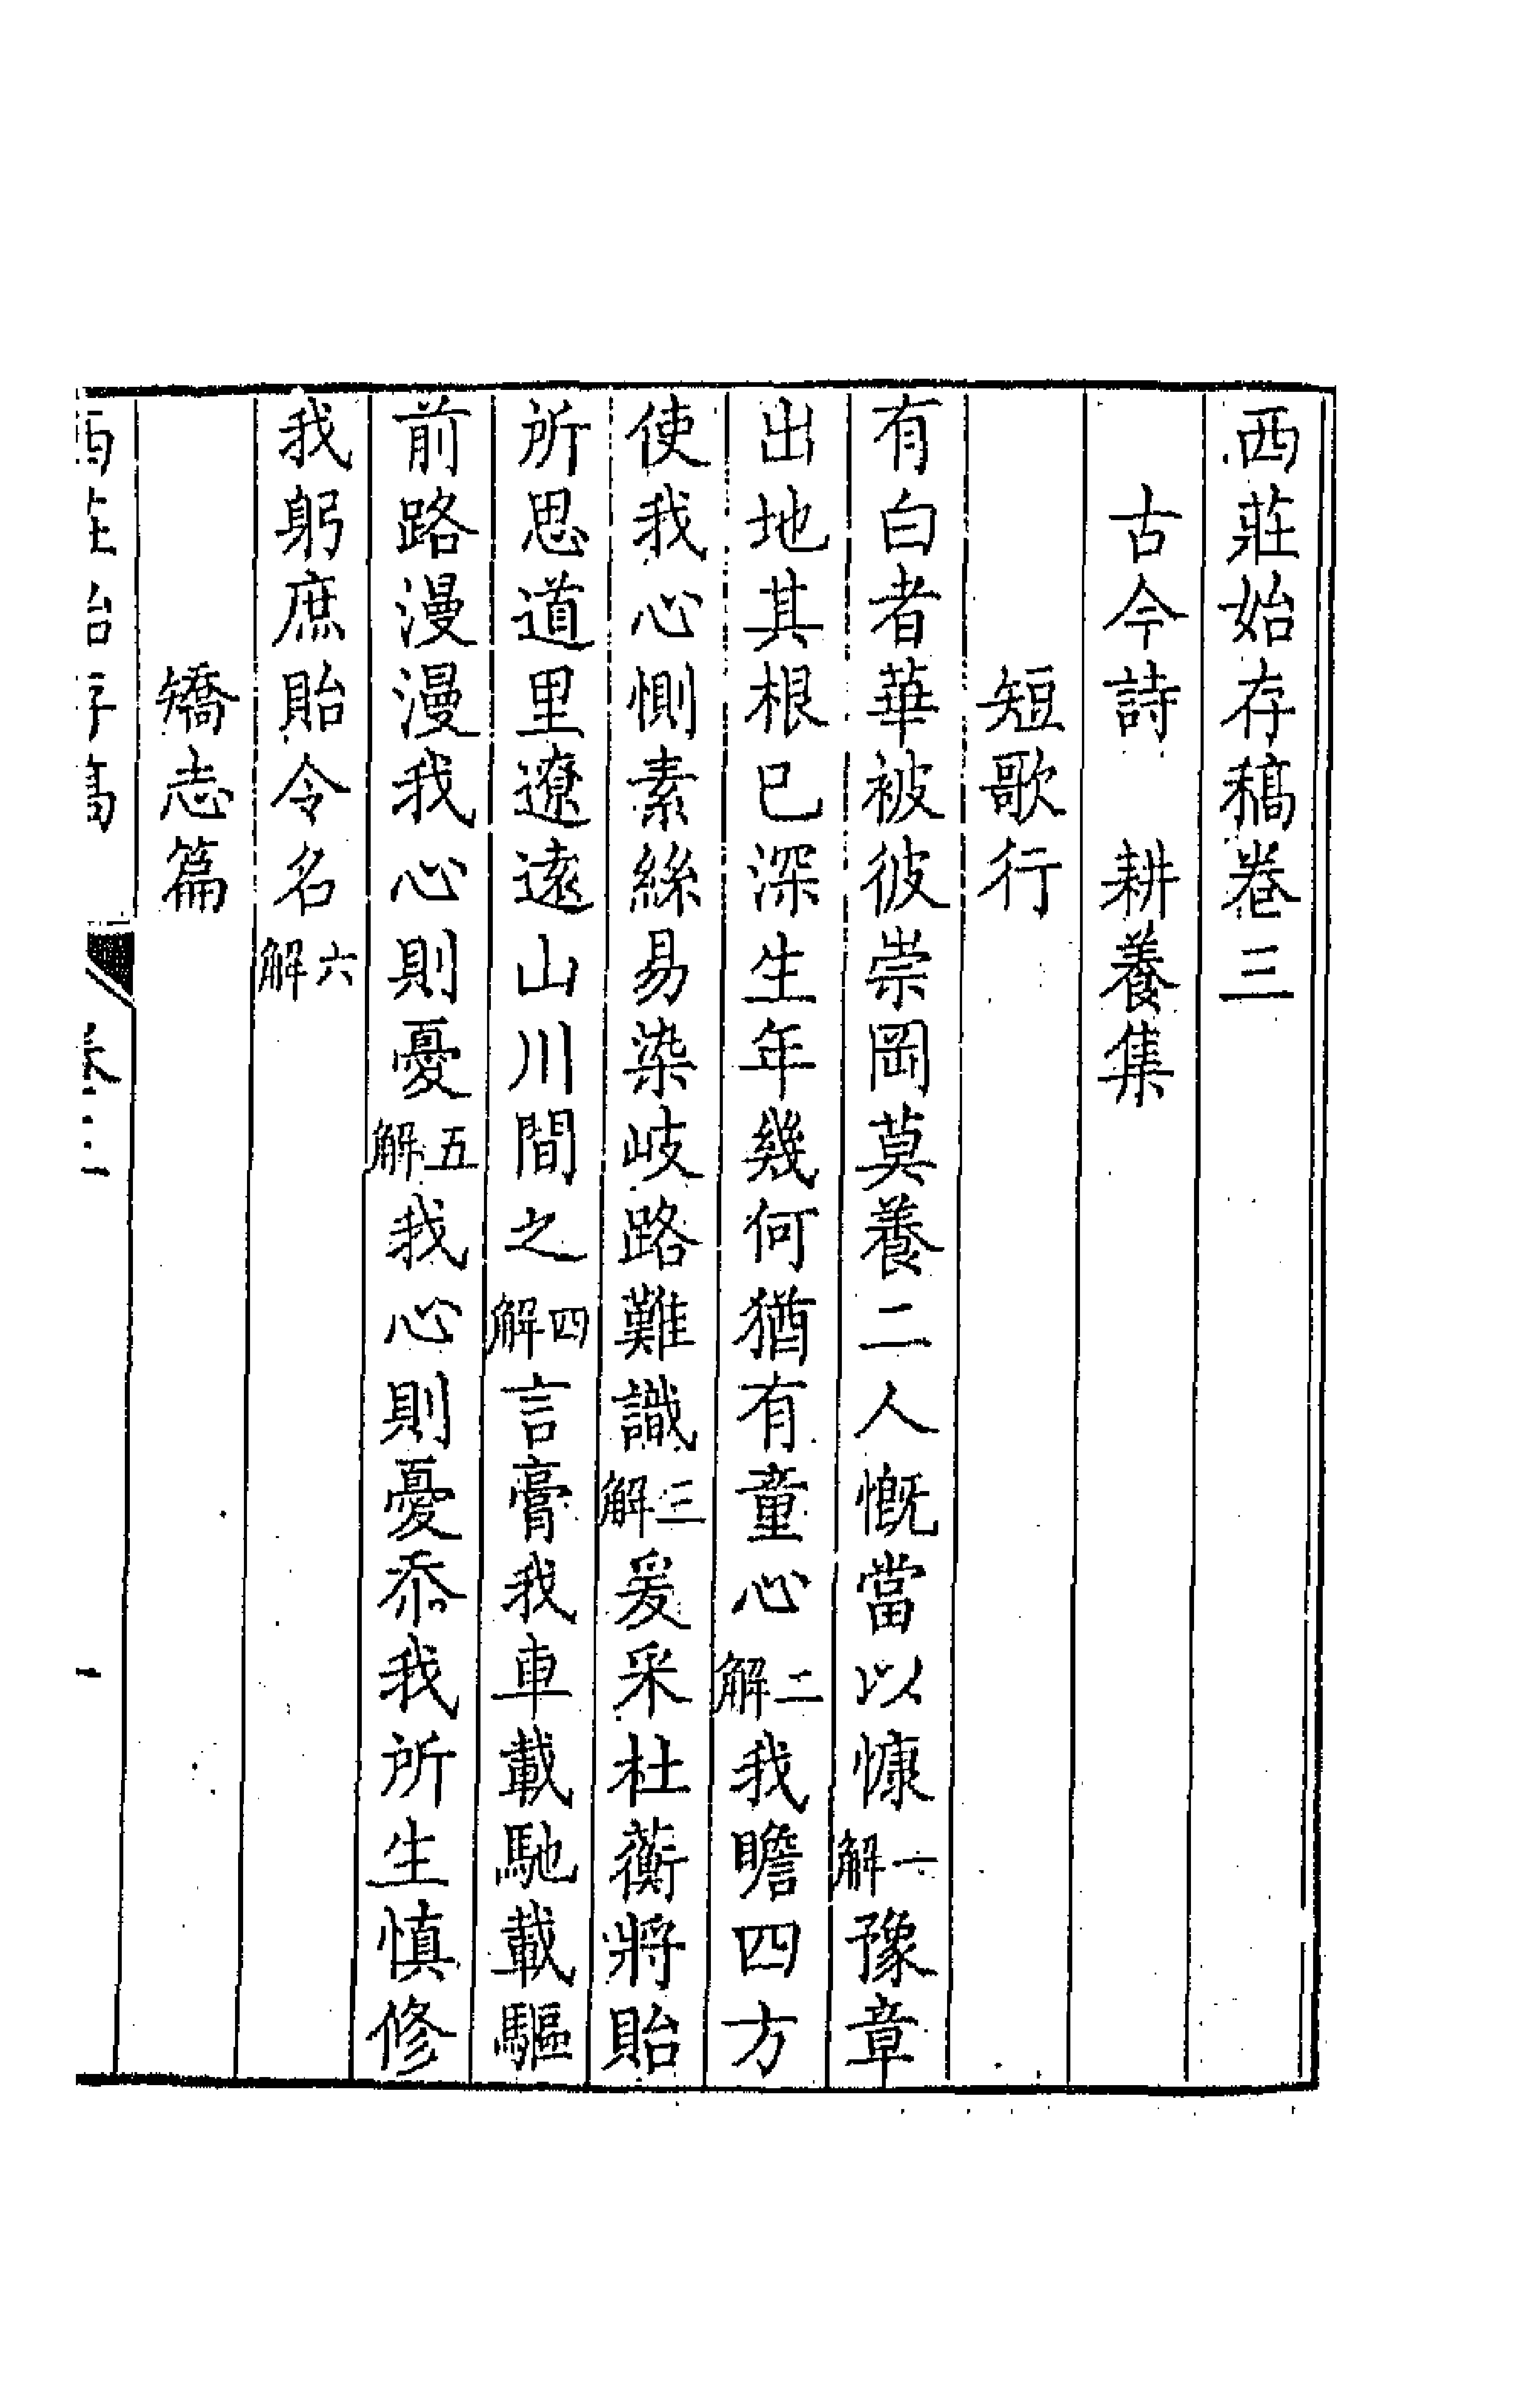 西莊始存稿卷三
古今詩　耕養集
短歌行
有白者華被彼崇岡莫養二人慨當以慷一解豫章
出地其根已深生年幾何猶有童心二解我瞻四方
使我心惻素絲易染岐路難識三解爰采杜蘅將貽
所思道里遼遠山川間之四解言膏我車載馳載驅
前路漫漫我心則憂五解我心則憂忝我所生慎修
我躬庶貽令名六解
矯志篇